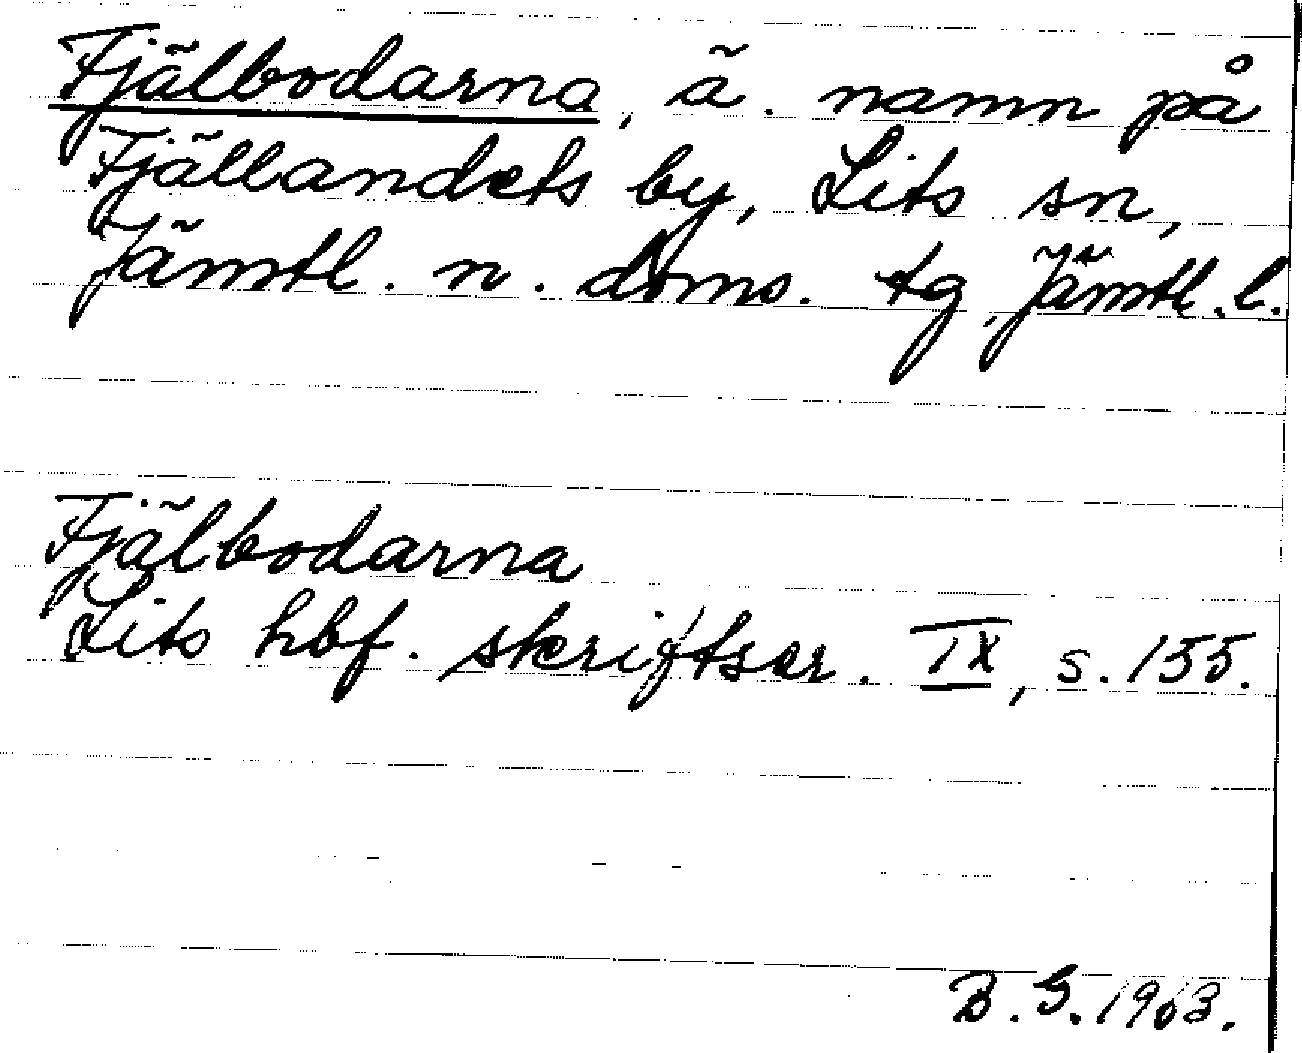 Fjälbodarna, ä. namn på
Fjällandets by, Lits sn,
Jämtl. n. doms. tg, Jämtl. l.
Fjälbodarna
Lits hbf. skriftser. IX, s. 155.
B. G. 1963.